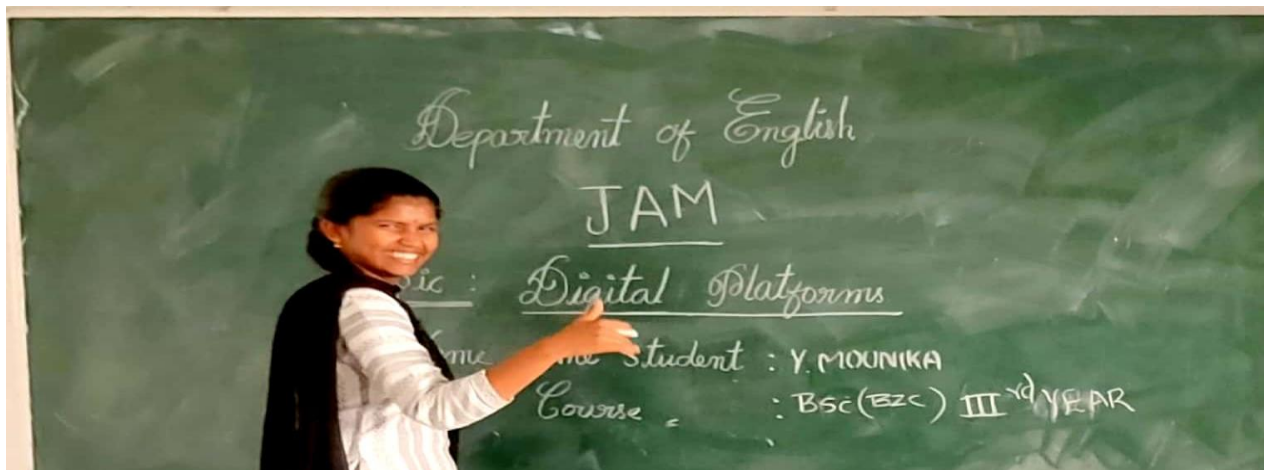 Department of English
JAM
ic : Digital Platforms
me student : Y. MOUNIKA
Course : BSC (BZC) III rd YEAR